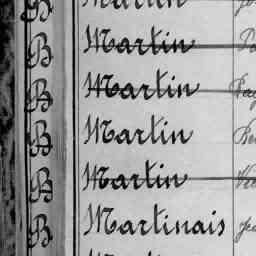 Martin
B Martin
B Martin
B Martin
B Martin
B Martinais